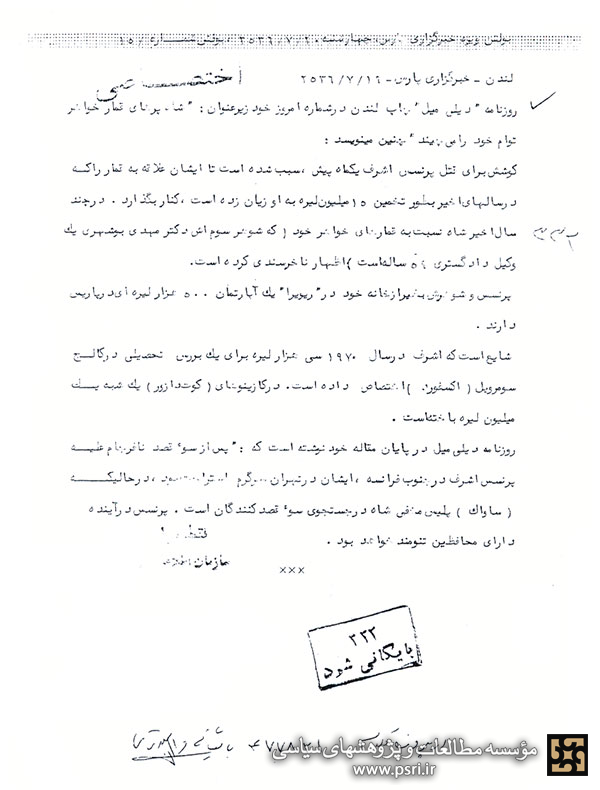 بولتن ویژه خبرگزاری پارس، چهارشنبه
اختصاصی
لندن - خبرگزاری پارس - ۲۵۳۶/۷/۱۶
روزنامه "دیلی میل" چاپ لندن در شماره امروز خود زیر عنوان: "شاه پرهای قمار خواهر
توام خود را می‌چیند" چنین مینویسد:
کوشش برای قتل پرنسس اشرف یکماه پیش، سبب شده است تا ایشان علاقه به قمار را که
در سالهای اخیر بطور تخمین ۱۵ میلیون لیره به او زیان زده است، کنار بگذارد. در چند
سال اخیر شاه نسبت به قمارهای خواهر خود (که شوهر سوم اش دکتر مهدی بوشهری یک
وکیل دادگستری ساله است) اظهار ناخرسندی کرده است.
پرنسس و شوهرش بغیر از خانه خود در "ریویرا" یک آپارتمان ۵۰۰ هزار لیره ای در پاریس
دارند.
شایع است که اشرف در سال ۱۹۷۰ سی هزار لیره برای یک بورس تحصیلی در کالج
سومرویل (اکسفورد) اختصاص داده است. در کازینوهای (کوت دازور) یک شبه یک
میلیون لیره باخته است.
روزنامه دیلی میل در پایان مقاله خود نوشته است که: "پس از سوء قصد نافرجام علیه
پرنسس اشرف در جنوب فرانسه، ایشان در تهران سرگرم استراحت بود، در حالیکه
(ساواک) پلیس مخفی شاه در جستجوی سوء قصد کنندگان است. پرنسس در آینده
دارای محافظین تنومند خواهد بود.
×××
۳۳۲
بایگانی شود
مؤسسه مطالعات و پژوهشهای سیاسی
www.psri.ir